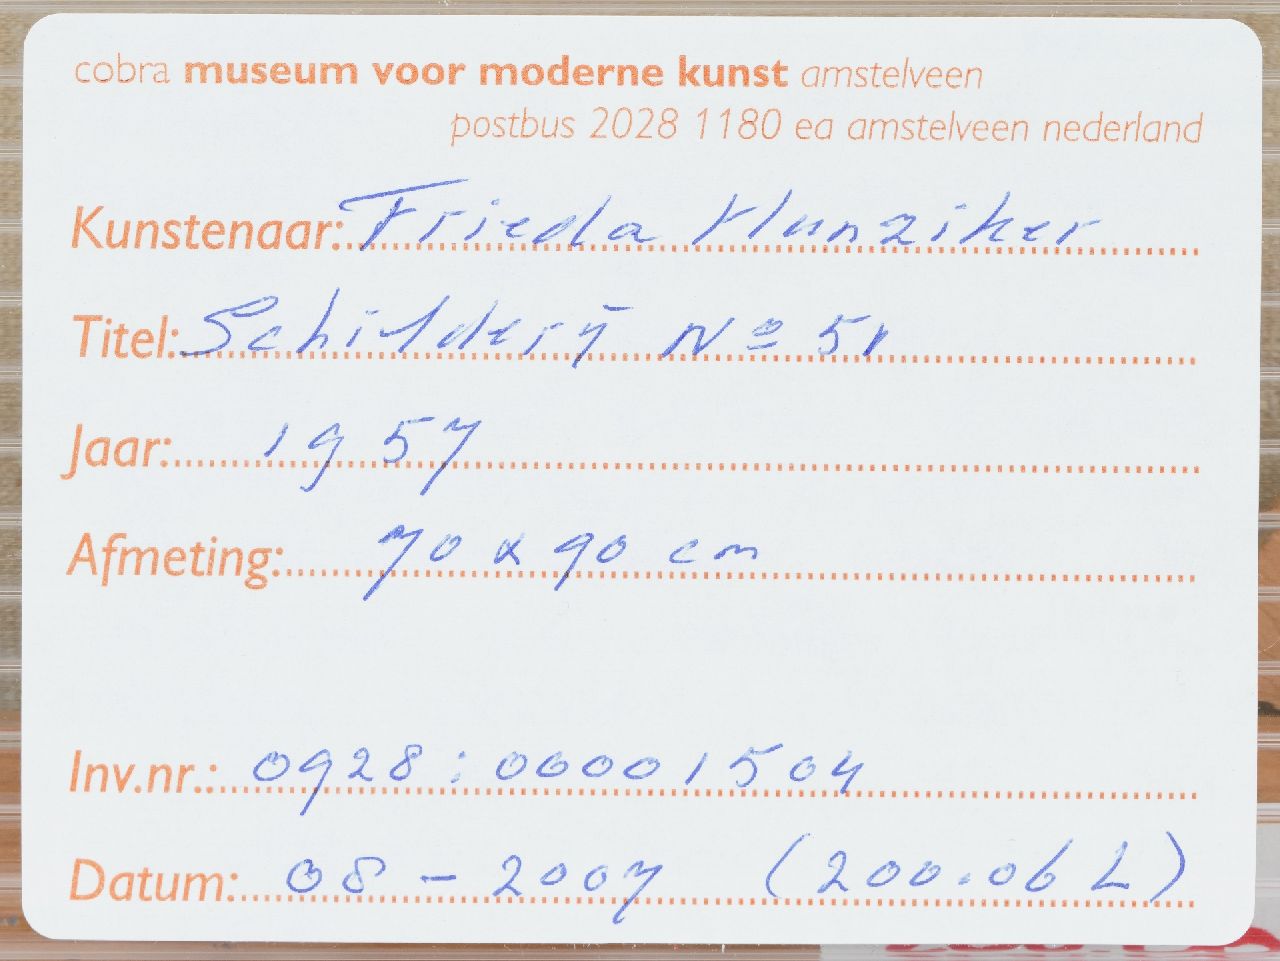 cobra museum voor moderne kunst amstelveen
postbus 2028 1180 ea amstelveen nederland
Kunstenaar: Frieda Hunziker
Titel: Schilderij Nº 51
Jaar: 1957
Afmeting: 70 x 90 cm
Inv.nr.: 0928:00001504
Datum: 08 - 2007 (200.06 L)